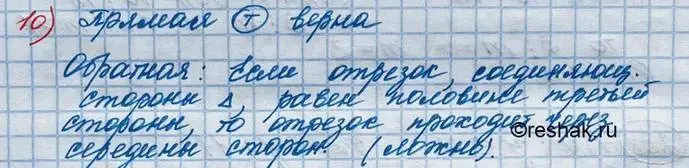 10) Прямая Т верна
Обратная: Если отрезок, соединяющ.
стороны Δ, равен половине третьей
стороны, то отрезок проходит через
середины сторон. (ложно).
©reshak.ru